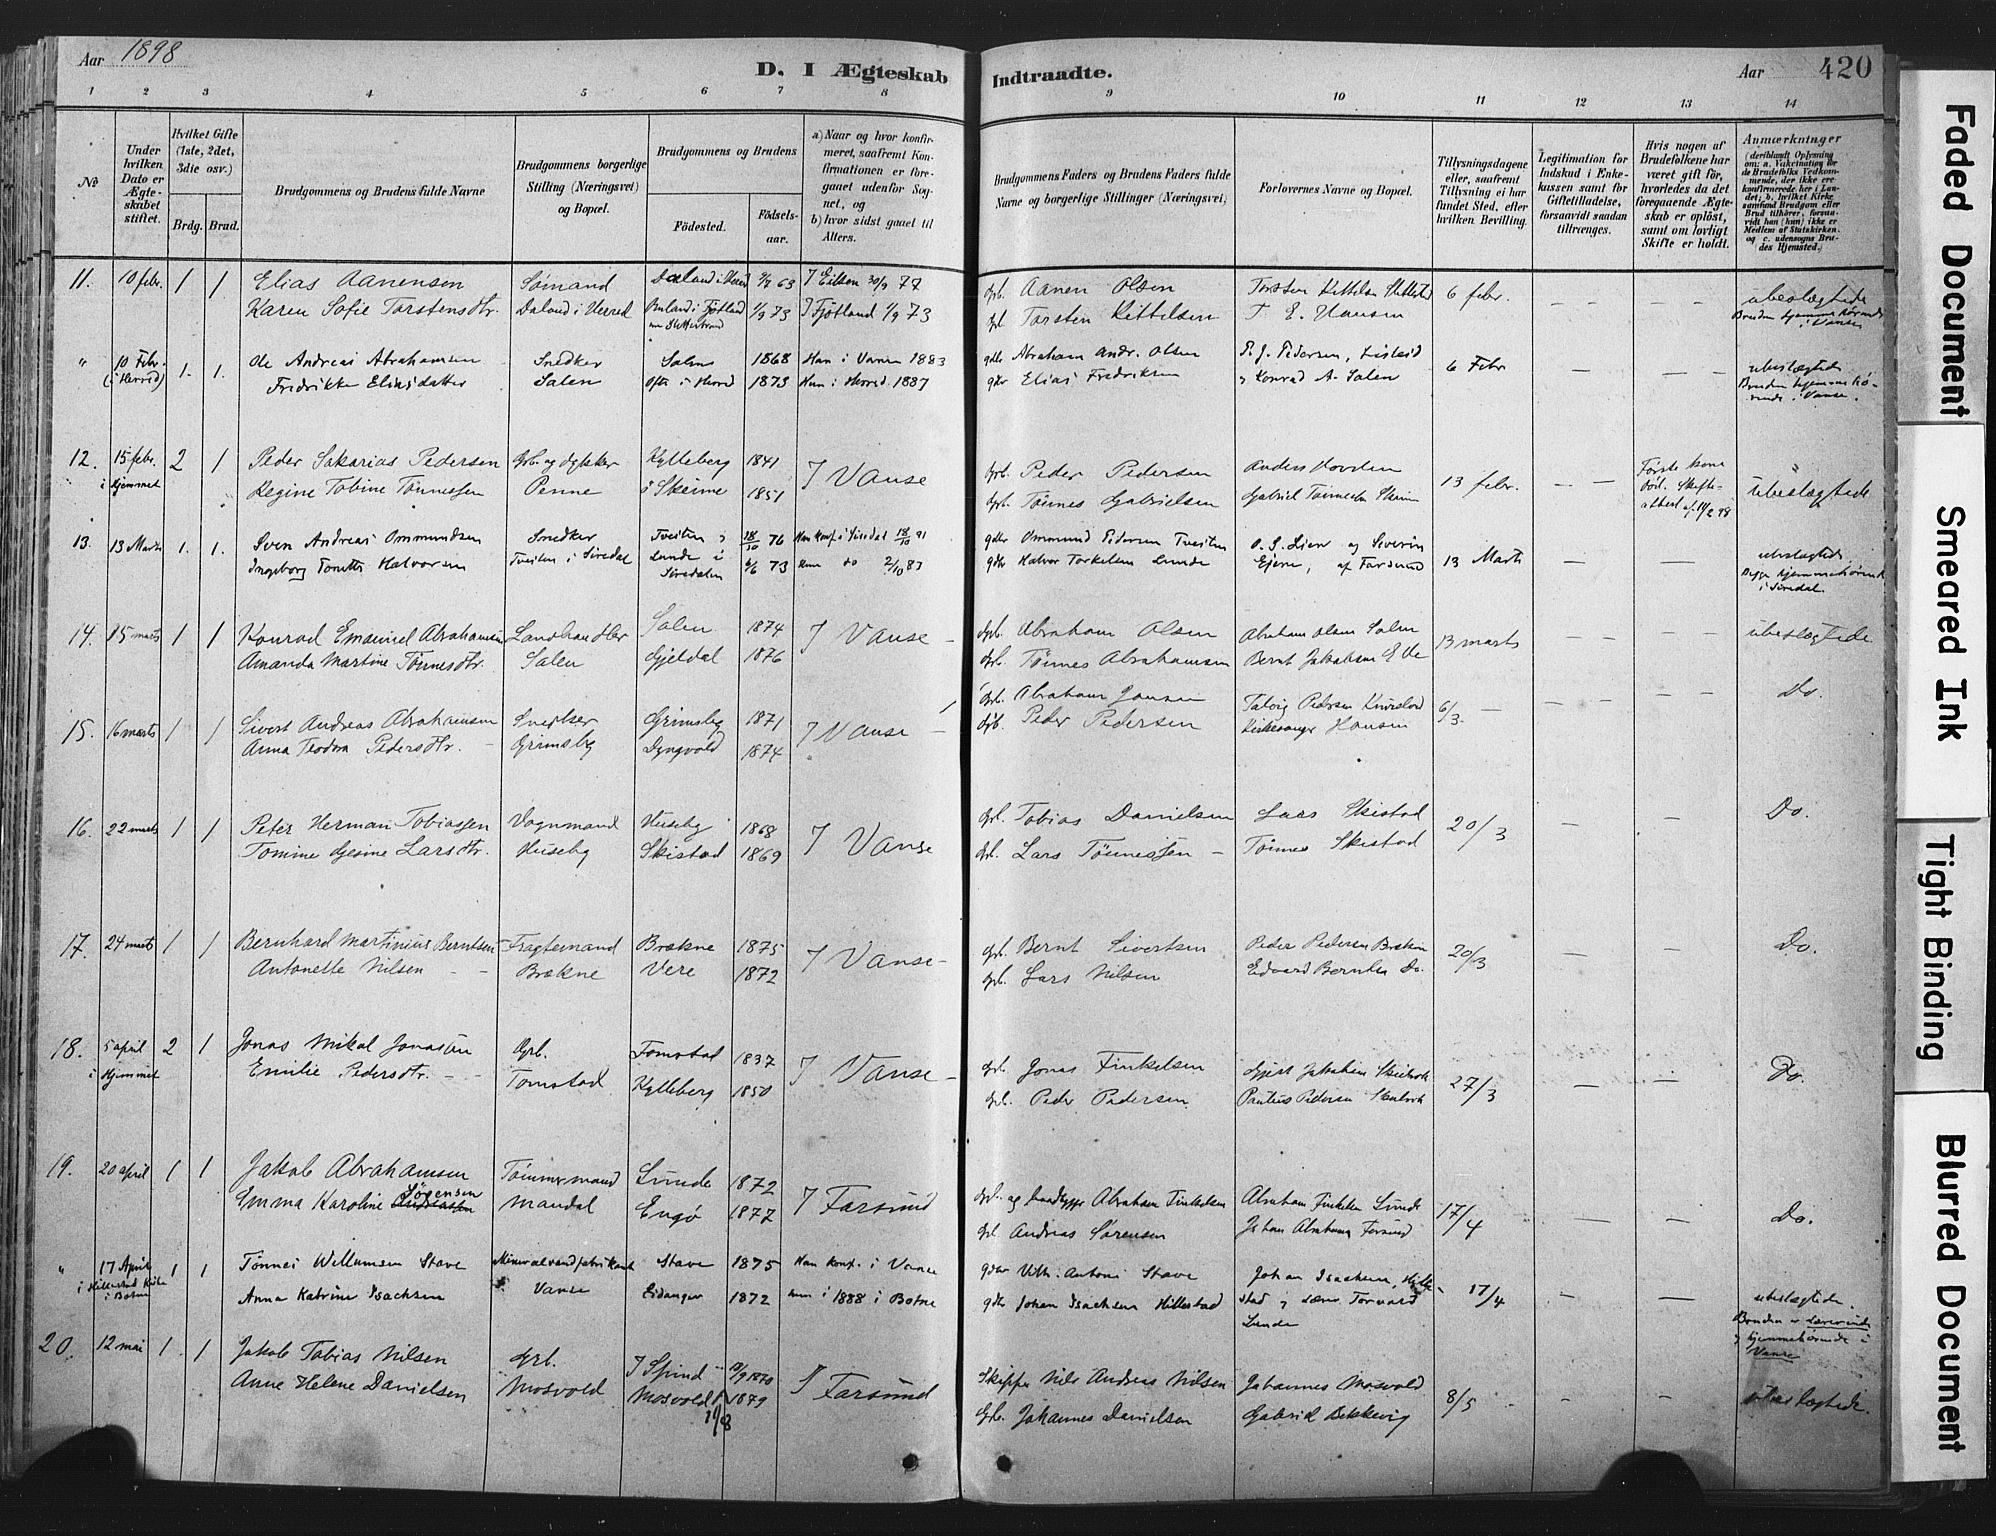 Aar 1898
D. I Ægteskab Indtraadte.
Aar 420
1 2 3 4 5 6 7 8 9 10 11 12 13 14
No
Under hvilken Dato er Ægteskabet stiftet.
Hvilket Gifte (1ste, 2det, 3die osv.)
Brdg. Brud.
Brudgommens og Brudens fulde Navne
Brudgommens borgerlige Stilling (Næringsvei) og Bopæl.
Brudgommens og Brudens
Fødested. Fødselsaar.
a) Naar og hvor konfirmeret, saafremt Konfirmationen er foregaaet udenfor Sognet, og
b) hvor sidst gaaet til Alters.
Brudgommens Faders og Brudens Faders fulde Navne og borgerlige Stillinger (Næringsvei)
Forlovernes Navne og Bopæl.
Tillysningsdagene eller, saafremt Tillysning ei har fundet Sted, efter hvilken Bevilling.
Legitimation for Indskud i Enkekassen samt for Giftetilladelse, forsaavidt saadan tiltrænges.
Hvis nogen af Brudefolkene har været gift før, hvorledes da det foregaaende Ægteskab er opløst, samt om lovligt Skifte er holdt.
Anmærkninger
(deriblandt Oplysning om: a. Vakcination for de Brudefolks Vedkommende, der ikke ere konfirmerede her i Landet; b. hvilket Kirkesamfund Brudgom eller Brud tilhører, forsaavidt han (hun) ikke er Medlem af Statskirken, og c. udensogns Brudes Hjemsted.)
11. 10 febr. 1 1 Elias Aanensen Sømand Daland i Herred 63 I Eiken 30/9 77 Grb. Aanen Olsen Torsten Kittelsen 6 febr. — — — —
Karen Sofie Torstensdtr. Daland i Herred 73 I Fjotland 1/9 73 Torsten Kittelsen T. E. Hansen ubeslægtede
Bruden hjemmehørende i Vanse
" 10 Febr. (i Herred) 1. 1. Ole Andreas Abrahamsen Snedker Salen 1868 Han i Vanse 1883 gdbr Abraham Andr. Olsen P. J. Pedersen, 6 Febr — — — ubeslægtede
Fredrikke Eliasdatter Salen Ofte i Herred 1873 Hun i Herred 1887 gdbr Elias Fredriksen og Konrad A. Salen Bruden hjemmehørende i Vanse.
12. 15 febr. i Hjemmet 2 1 Peder Sakarias Pedersen Grb. og dykker Kylleberg 1841 I Vanse Grb. Peder Pedersen Anders 13 febr. — — Første kone død. Skifteattest af 14/2 98 ubeslægtede
Regine Tobine Tønnessen Penne Skeime 1851 Grb. Tønnes Gabrielsen Gabriel Tønnessen Skeime
13. 13 Marts 1. 1. Sven Andreas Ommundsen Snedker Tveiten 18/10 76 Han konf. i Siredal 18/10 91 gdbr Ommund Pedersen Tveiten O. S. Lien og Severin 13 Marts — — — ubeslægtede
Ingeborg Tonette Halvorsen Tveiten i Siredal Lunde i Siredalen 6/6 73 Hun do 2/10 87 gdbr Halvor Torkelsen Lunde Ejene, af Farsund Begge hjemmehørende i Siredal
14. 15 marts 1 1 Konrad Emanuel Abrahamsen Landhandler Salen 1874 I Vanse — Grb. Abraham Olsen Abraham Olsen Salen 13 marts — — — — ubeslægtede
Amanda Martine Tønnesdtr. Salen Gjeldal 1876 Grb. Tønnes Abrahamsen Bernt Jakobsen
15. 16 marts 1 1 Sivert Andreas Abrahamsen Snedker Grimsby 1871 I Vanse — Grb. Abraham Jansen Talvig Pedersen 6/3. — — — — Do.
Anna Teodora Pedersdtr. — Grimsby Dyngvold 1874 Grb. Peder Pedersen Kirkesanger Hansen
16. 22 marts 1 1 Peter Herman Tobiassen Vognmand Huseby 1868 I Vanse Grb. Tobias Danielsen Lars Skistad 20/3 — — Do.
Tomine Gesine Larsdtr. Huseby Skistad 1869 Grb. Lars Tønnessen — Tønnes Skistad
17. 24 marts 1 1 Bernhard Martinius Berntsen Fragtemand Brekne 1875 I Vanse — Grb. Bernt Sivertsen Peder Pedersen Brekne 20/3 — — Do.
Antonette Nilsen — — Brekne Vere 1872 Grb. Lars Nilsen Edvard Berntsen Do.
18. 5 april i Hjemmet 2 1 Jonas Mikal Jonassen Grb. Tomstad 1837 I Vanse — Grb. Jonas Finkelsen Jakobsen 27/3 — — Do.
Emilie Pedersdtr. — — Tomstad Kylleberg 1850 Grb. Peder Pedersen Paulius Pedersen
19. 20 april 1 1 Jakob Abrahamsen Tømmermand Lunde 1872 I Farsund Grb. og Abraham Finkelsen Abraham Finkelsen Lunde 17/4 — — Do.
Emma Karoline Sørensen Mandal Engø 1877 Grb. Andreas Sørensen Johan Abrahams Farsund
" 17 April i Hillestad Kirke i Botne 1 1 Tønnes Willumsen Stave Mineralvandfabrikant Stave 1875 Han konf. i Vanse gdbr Vilh. Antoni Stave Johan Isachsen, Hillestad og Lærer Torvard Lunde 17/4 — — ubeslægtede.
Anna Katrine Isachsen Vanse Eidanger 1872 hun i 1888 i Botne gdbr Johan Isachsen Hillestad Bruden er Lærerinde og hjemmehørende i Vanse
20. 12 mai 1. 1 Jakob Tobias Nilsen Grb. I Spind 1870 I Farsund Skipper Nils Andreas Nilsen Johannes Mosvold 8/5 — — ubeslægtede.
Anne Helene Danielsen Mosvold Mosvold 1879 11/8 Grb. Johannes Danielsen Gabriel Bekkevig
Faded Document
Smeared Ink
Tight Binding
Blurred Document